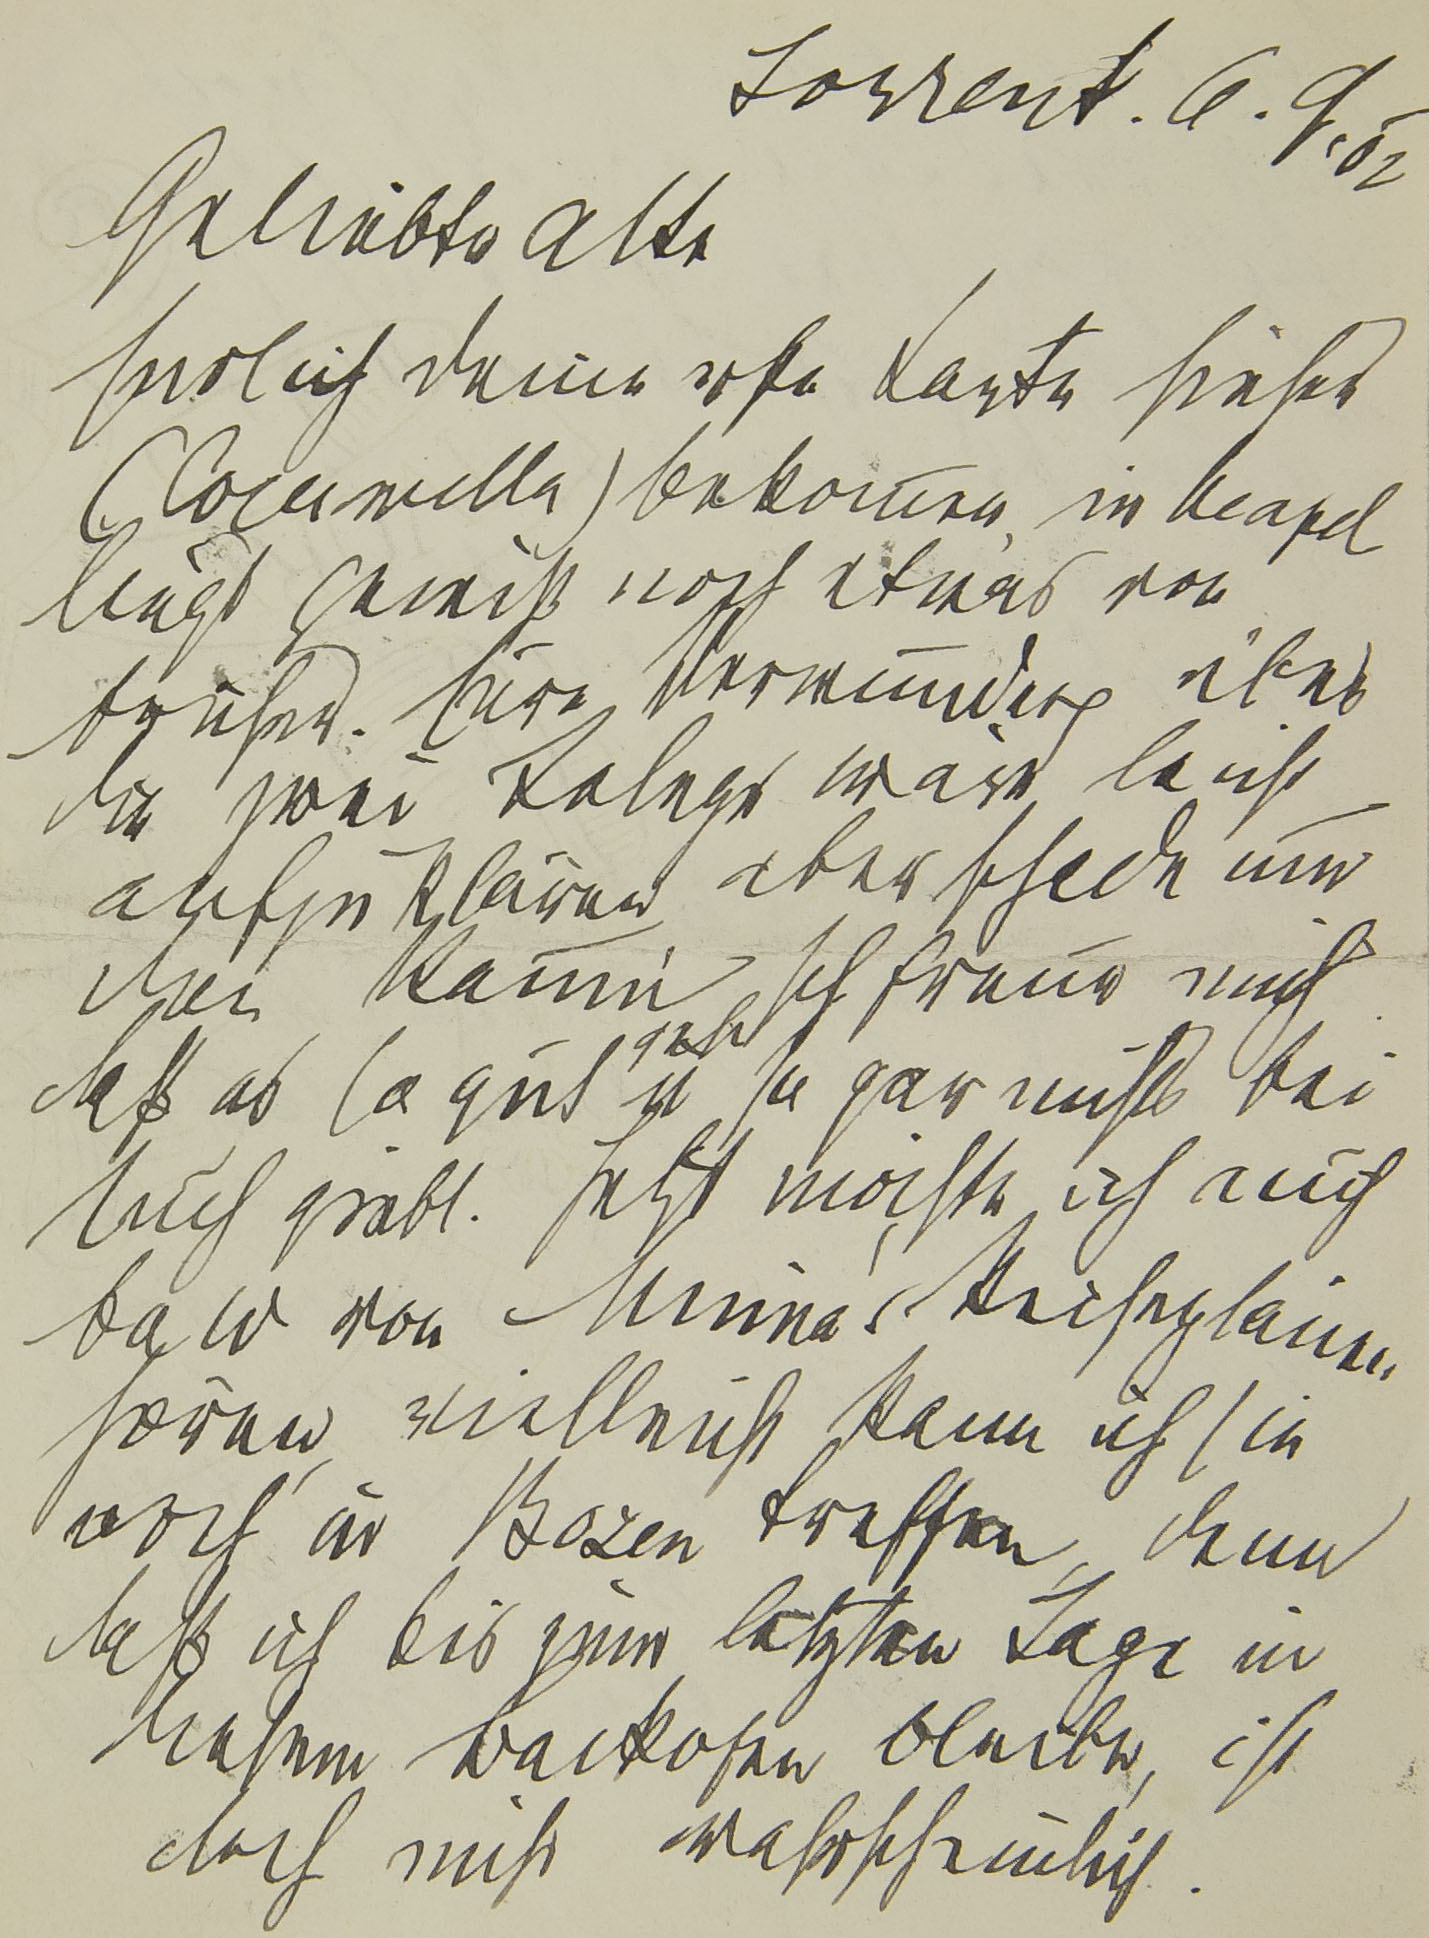 Sorrent. 6. 9. 02
Geliebte Alte
Endlich deine erste Karte hieher
(Cocumella) bekommen, in Neapel
liegt gewiß noch etwas von
früher. Eure Verwunderg über
die zwei Telegr wäre leicht
aufzuklären aber schade um
den Raum. Ich freue mich
daß es so gut geht u so gar nichts bei
Euch giebt. Jetzt möchte ich auch
bald von Minna's Reiseplänen
hören, vielleicht kann ich sie
noch in Bozen treffen, denn
daß ich bis zum letzten Tage in
diesem Backofen bleibe, ist
doch nicht wahrscheinlich.